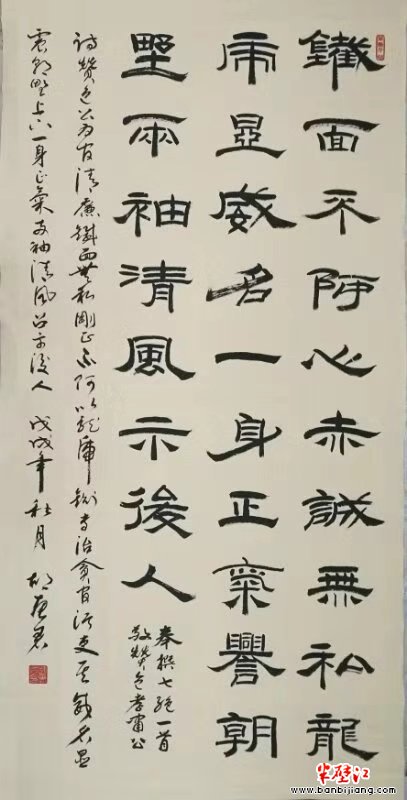 鐵面不阿心赤誠無私龍
虎显威名一身正氣譽朝
野兩袖清風示後人
奉撰七絕一首
敬贊包孝肅公
詩贊包公为官清廉鐵面無私剛正不阿以龍虎鍘专治貪官污吏其威名显
朝野上下一身正氣两袖清風 示後人 戊戌年秋月 胡
半壁江
www.banbijiang.com